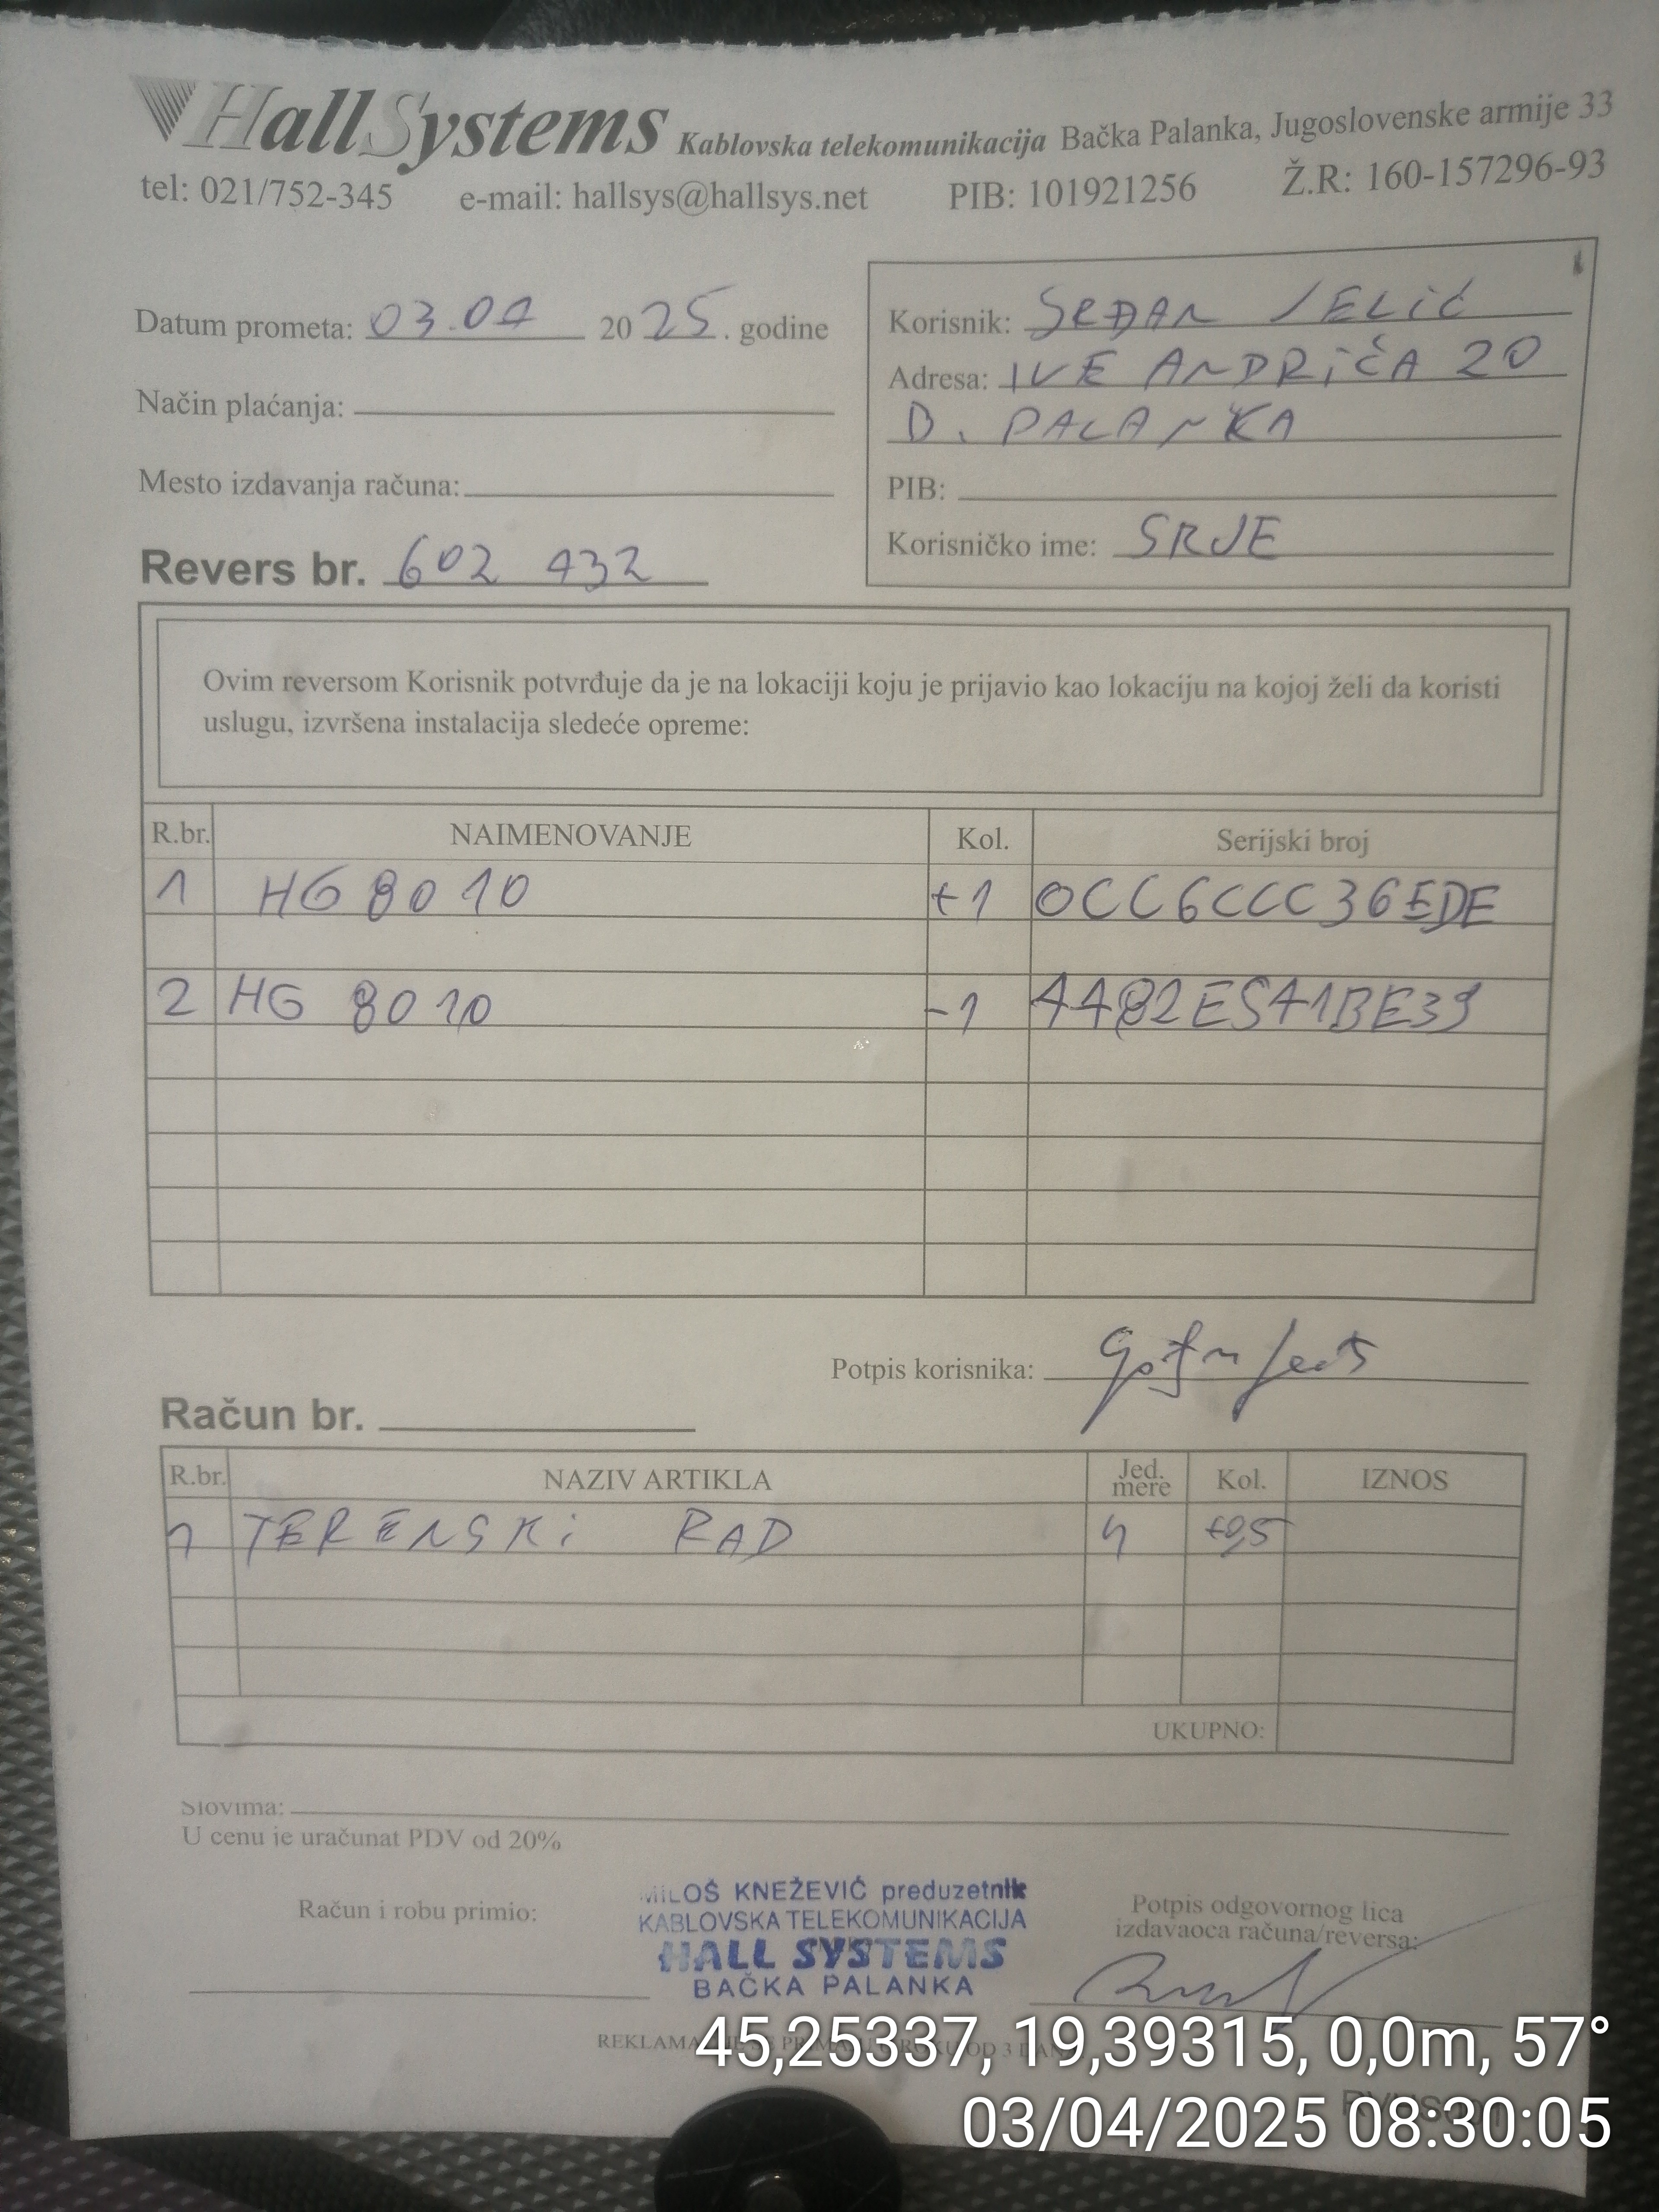 HallSystems Kablovska telekomunikacija Bačka Palanka, Jugoslovenske armije 33
tel: 021/752-345 e-mail: hallsys@hallsys.net PIB: 101921256 Ž.R: 160-157296-93
Datum prometa: 03.04 2025. godine
Način plaćanja:
Mesto izdavanja računa:
Revers br. 602 432
Korisnik: SRĐAN JELIĆ
Adresa: IVE ANDRIĆA 20
B. PALANKA
PIB:
Korisničko ime: SRJE
Ovim reversom Korisnik potvrđuje da je na lokaciji koju je prijavio kao lokaciju na kojoj želi da koristi
uslugu, izvršena instalacija sledeće opreme:
R.br. NAIMENOVANJE Kol. Serijski broj
1 HG 8010 +1 0CC6CCC36EDE
2 HG 8010 -1 4482E541BE39
Potpis korisnika:
Račun br.
R.br. NAZIV ARTIKLA Jed. mere Kol. IZNOS
1 TERENSKI RAD h +0,5
UKUPNO:
Slovima:
U cenu je uračunat PDV od 20%
Račun i robu primio:
MILOŠ KNEŽEVIĆ preduzetnik
KABLOVSKA TELEKOMUNIKACIJA
HALL SYSTEMS
BAČKA PALANKA
Potpis odgovornog lica
izdavaoca računa/reversa:
45,25337, 19,39315, 0,0m, 57°
03/04/2025 08:30:05